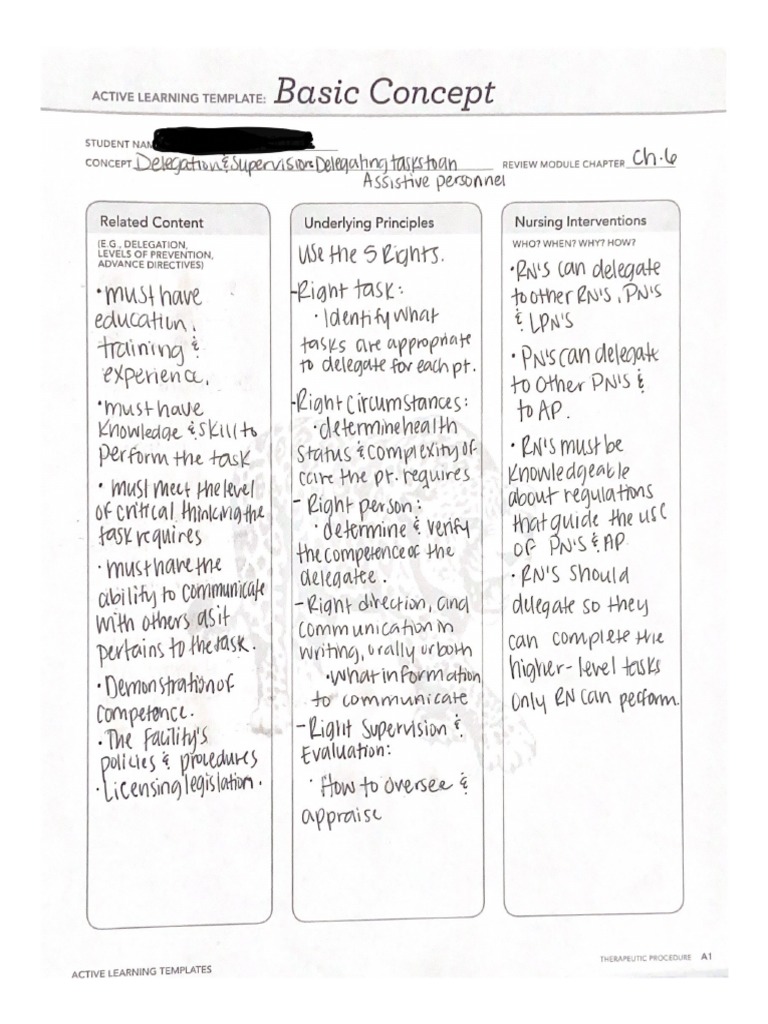 ACTIVE LEARNING TEMPLATE: Basic Concept
STUDENT NAM
CONCEPT Delegation & Supervision: Delegating tasks to an
Assistive personnel
REVIEW MODULE CHAPTER Ch.6
Related Content
(E.G., DELEGATION,
LEVELS OF PREVENTION,
ADVANCE DIRECTIVES)
• must have
education,
training &
experience.
• must have
knowledge & skill to
perform the task
• must meet the level
of critical thinking the
task requires
• must have the
ability to communicate
with others as it
pertains to the task.
• Demonstration of
competence.
• The Facility's
policies & procedures
• Licensing legislation.
Underlying Principles
Use the 5 Rights.
- Right task:
• Identify what
tasks are appropriate
to delegate for each pt.
- Right circumstances:
• determine health
status & complexity of
care the pt. requires
- Right person:
• determine & verify
the competence of the
delegatee.
- Right direction, and
communication in
writing, orally or both
• What information
to communicate
- Right Supervision &
Evaluation:
• How to oversee &
appraise
Nursing Interventions
WHO? WHEN? WHY? HOW?
• RN's can delegate
to other RN's, PN's
& LPN's
• PN's can delegate
to other PN's &
to AP.
• RN's must be
knowledgeable
about regulations
that guide the use
of PN's & AP.
• RN's should
delegate so they
can complete the
higher-level tasks
only RN can perform.
ACTIVE LEARNING TEMPLATES
THERAPEUTIC PROCEDURE A1